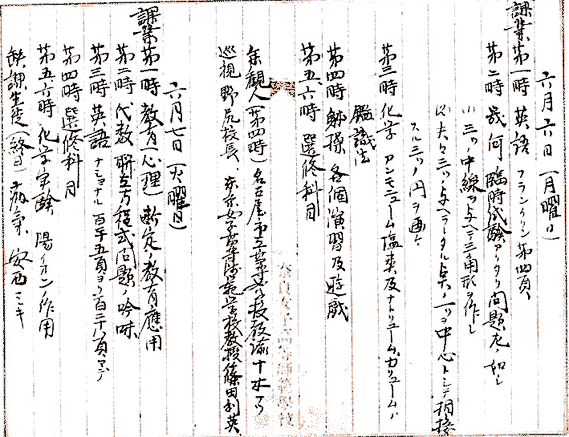 六月六日(月曜日)
課業第一時 英語 フランクリン第四頁
第二時 幾何 臨時試験アリタリ問題左ノ如シ
(1) 三ツノ中線ヲ与ヘテ三角形ヲ作レ
(2) 大々三ツノ与ヘラレタル点ノ一ツヲ中心トシテ相接
スル三ツノ円ヲ画ケ
第三時 化学 アンモニューム塩類及ナトリューム、カリュームノ
鑑識法
第四時 体操 各個演習及遊戯
第五六時 選修科目
参観人(第四時)名古屋市立高等女学校教諭十
巡視 野尻校長、東京女子高等師範学校教授篠田利英
六月七日(火曜日)
課業第一時 教育 心理 断定ノ教育應用
第二時 代数 聯立方程式問題ノ吟味
第三時 英語 ナショナル 百十五頁ヨリ百二十八頁マデ
第四時 選修科目
第五六時 化学実験 陽イオンノ作用
缺課生徒(終日)病気 安西ミキ
奈良女子高等師範學校